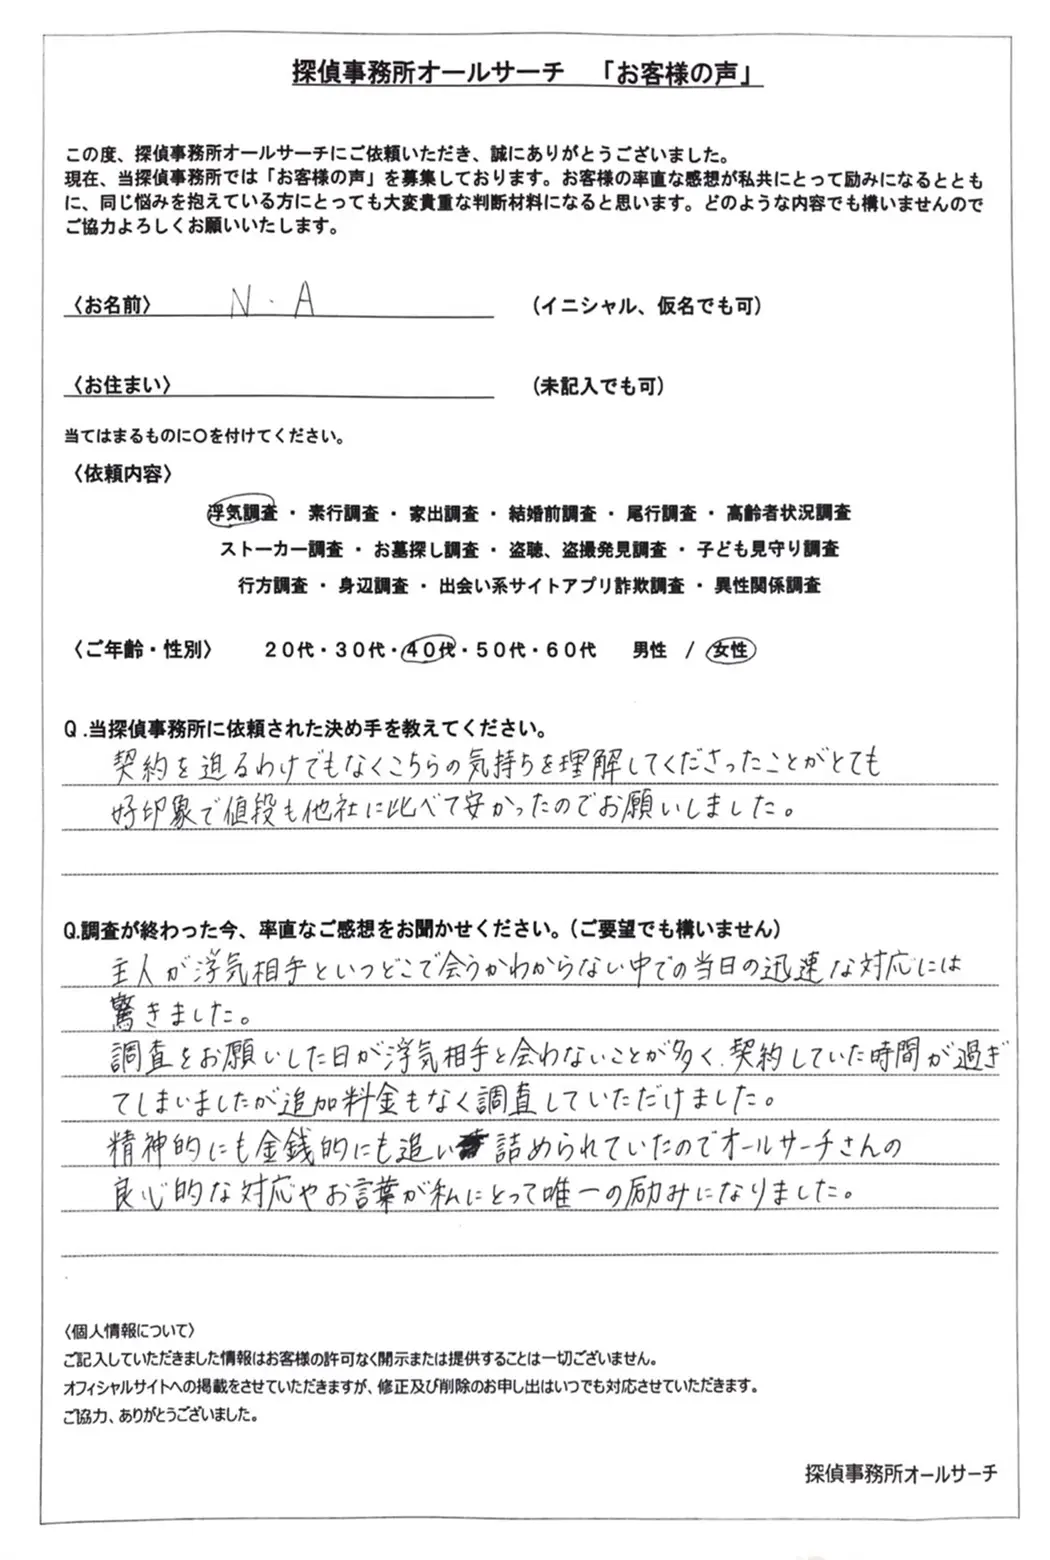 探偵事務所オールサーチ 「お客様の声」
この度、探偵事務所オールサーチにご依頼いただき、誠にありがとうございました。
現在、当探偵事務所では「お客様の声」を募集しております。お客様の率直な感想が私共にとって励みになるととも
に、同じ悩みを抱えている方にとっても大変貴重な判断材料になると思います。どのような内容でも構いませんので
ご協力よろしくお願いいたします。
〈お名前〉 N・A (イニシャル、仮名でも可)
〈お住まい〉 (未記入でも可)
当てはまるものに〇を付けてください。
〈依頼内容〉
浮気調査 ・ 素行調査 ・ 家出調査 ・ 結婚前調査 ・ 尾行調査 ・ 高齢者状況調査
ストーカー調査 ・ お墓探し調査 ・ 盗聴、盗撮発見調査 ・ 子ども見守り調査
行方調査 ・ 身辺調査 ・ 出会い系サイトアプリ詐欺調査 ・ 異性関係調査
〈ご年齢・性別〉 20代・30代・40代・50代・60代 男性 / 女性
Q.当探偵事務所に依頼された決め手を教えてください。
契約を迫るわけでもなくこちらの気持ちを理解してくださったことがとても
好印象で値段も他社に比べて安かったのでお願いしました。
Q.調査が終わった今、率直なご感想をお聞かせください。(ご要望でも構いません)
主人が浮気相手といつどこで会うかわからない中での当日の迅速な対応には
驚きました。
調査をお願いした日が浮気相手と会わないことが多く、契約していた時間が過ぎ
てしまいましたが追加料金もなく調査していただけました。
精神的にも金銭的にも追い詰められていたのでオールサーチさんの
良心的な対応やお言葉が私にとって唯一の励みになりました。
〈個人情報について〉
ご記入していただきました情報はお客様の許可なく開示または提供することは一切ございません。
オフィシャルサイトへの掲載をさせていただきますが、修正及び削除のお申し出はいつでも対応させていただきます。
ご協力、ありがとうございました。
探偵事務所オールサーチ